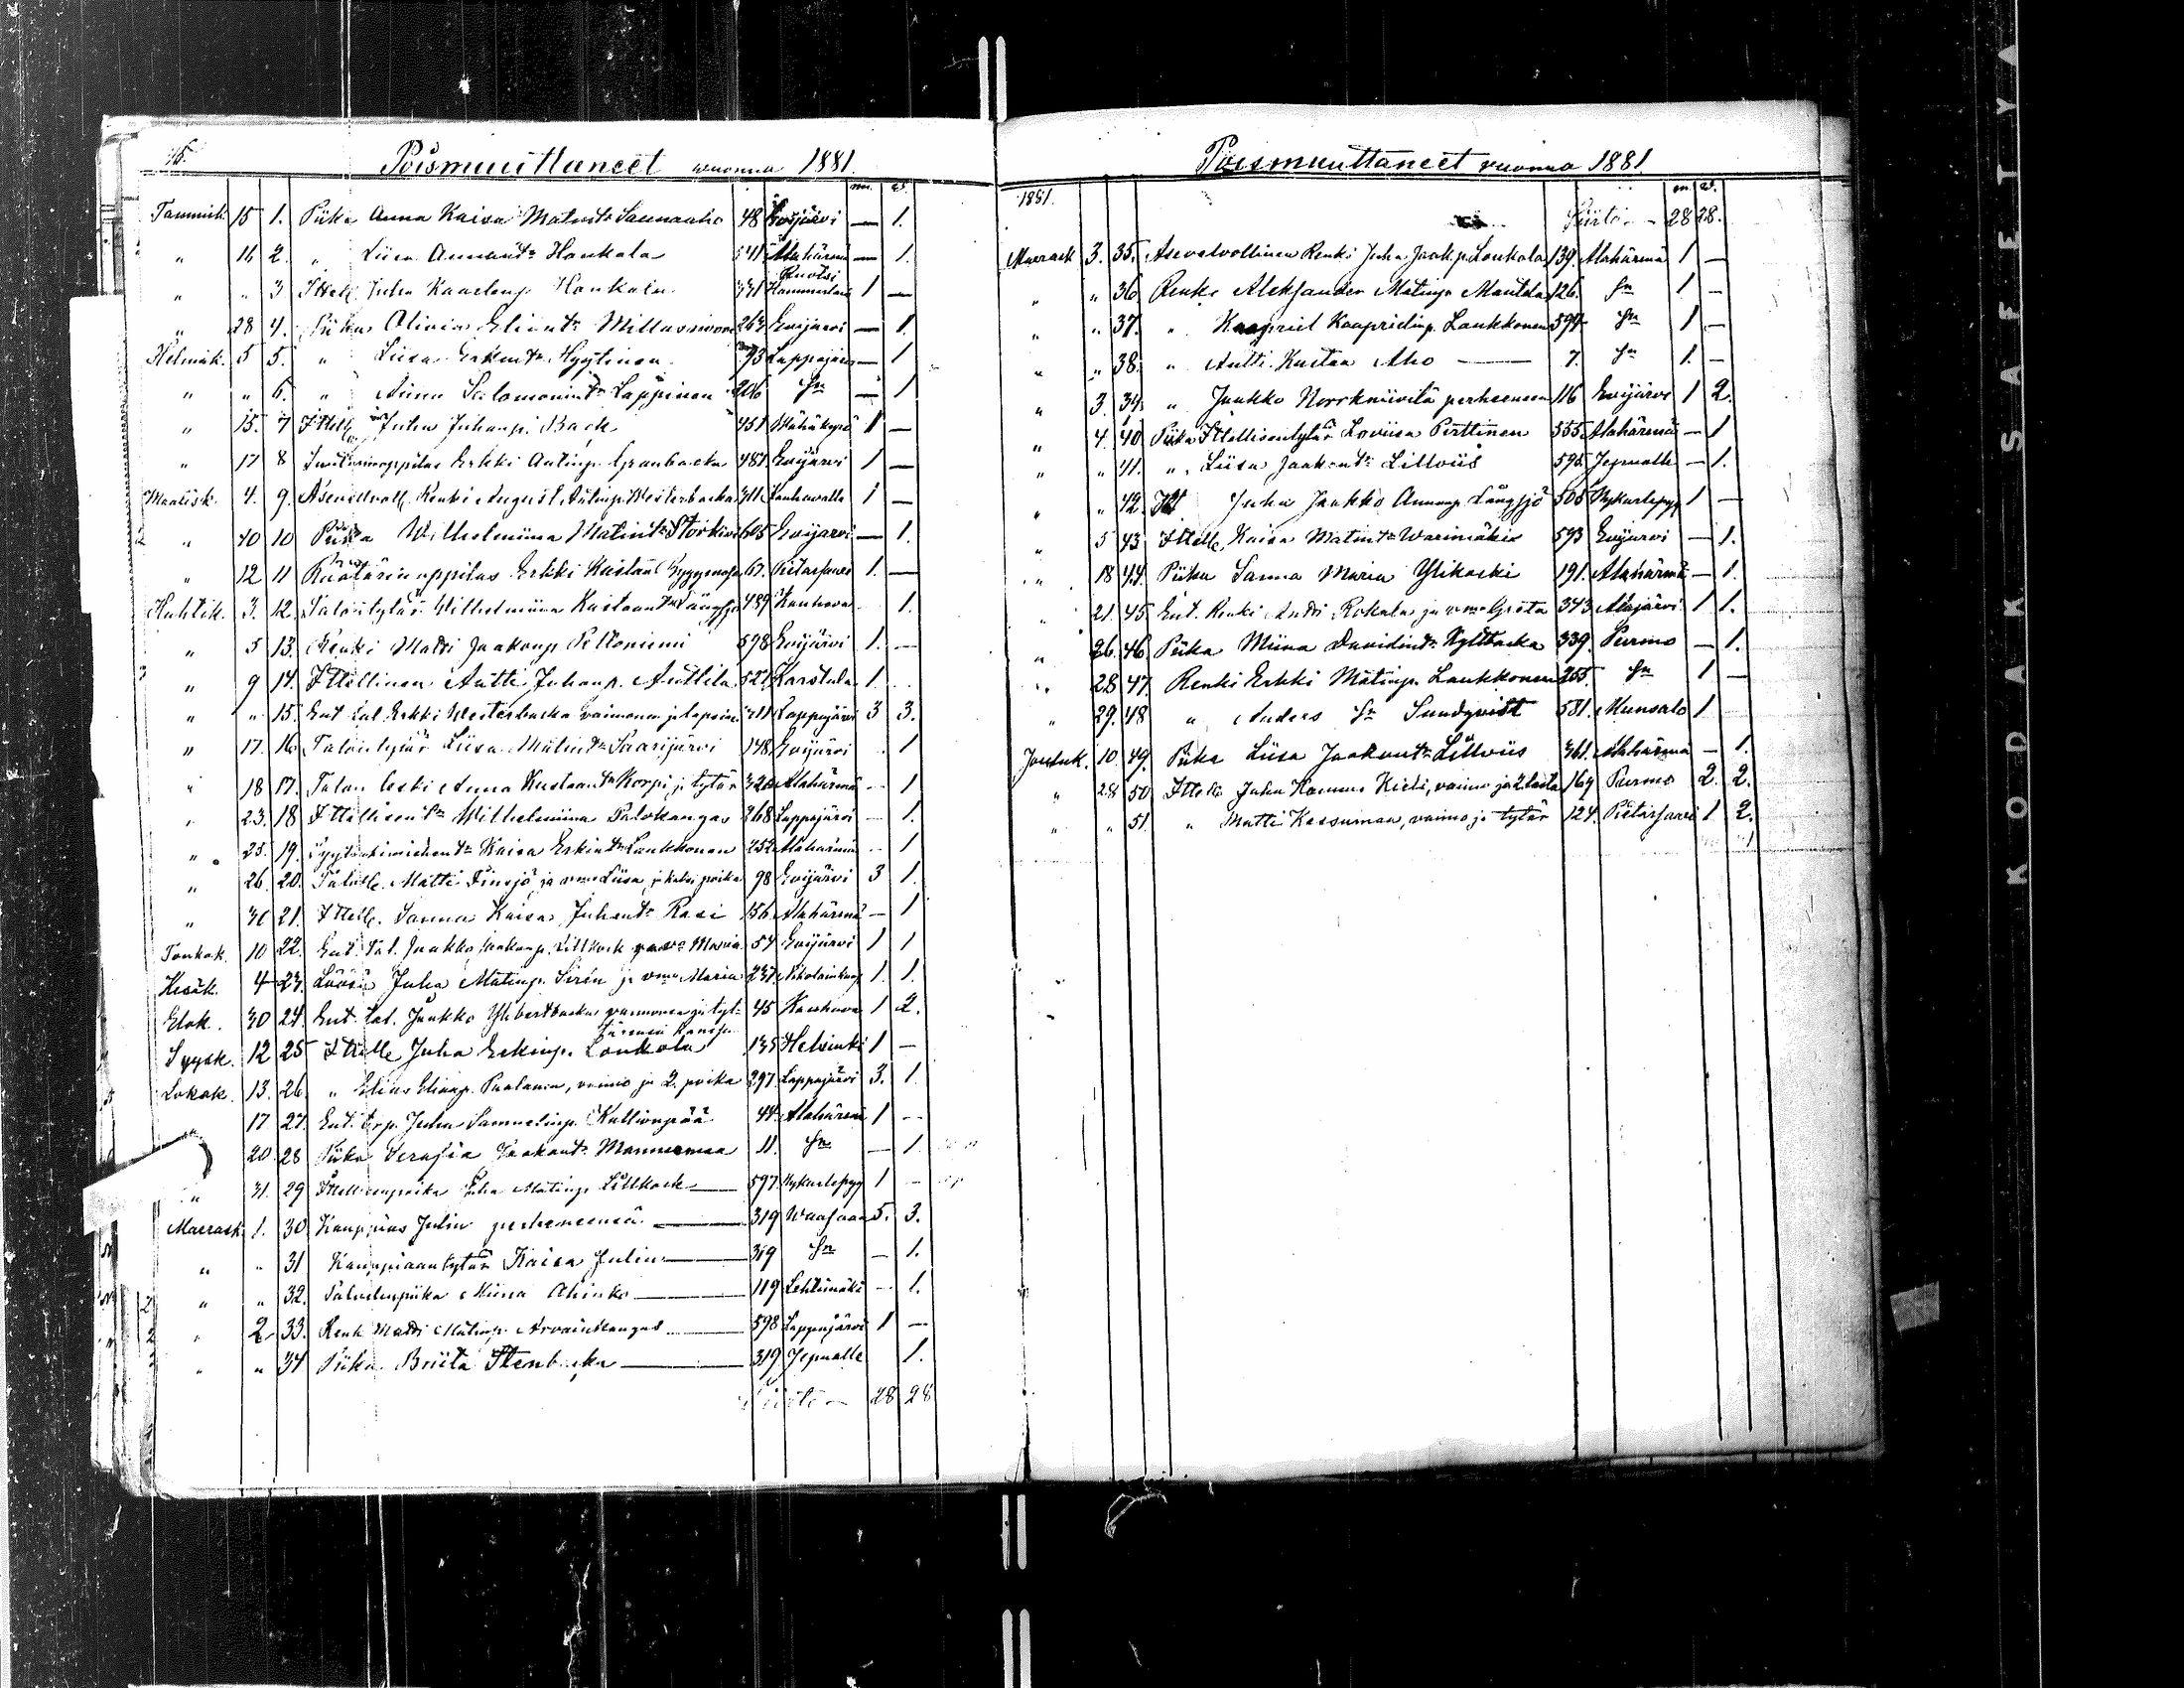 Poismuuttaneet vuonna 1881.
m. v.
Tammik. 15 1. Piika Anna Kaisa Matint. Saunaaho 48 Evijärvi — 1.
" 16 2. " Liisa Annant. Honkala 541 Alahärmä — 1.
" " 3 Ittell. Juha Kaarlenp. Honkala 331 Ruotsi Hammerland 1 —
" 28 4. Piika Olivia Eliint. 263 Evijärvi — 1.
Helmik. 5 5. " Liisa Erkint. Hyytinen 93 Lappajärvi — 1
" " 6. " Anna Salomonint. Lappinen 206 Sn — 1
" 15. 7 Ittell. Juha Juhanp. Back 451 1 —
" 17 8 Erkki Antinp. Granbacka 481 Evijärvi 1 —
Maalisk. 4. 9. Asevelvoll. Renki August Antinp. Westerbacka 311 Kauhavalla 1 —
" 10 10 Piika Wilhelmiina Matint. 605 Evijärvi — 1.
" 12 11 Räätärin oppilas Erkki Kustaanp. 67. Pietarsaari 1. —
Huhtik. 3. 12. Talontytär Wilhelmiina Kustaant. Långsjö 489 Kauhava 1.
" 5 13. Renki Matti Jaakonp. Peltoniemi 598 Evijärvi 1. —
" 9 14. Ittellinen Antti Juhanp. Anttila 521 Karstula 1.
" " 15. Ent. tal. Erkki Westerbacka vaimonen ja lapsin. 311 Lappajärvi 3 3.
" 17. 16 Talontytär Liisa Matint. Saarijärvi 148 Evijärvi 1
" 18 17. Talon leski Anna Kustaant. Korpi, ja tytär 320 Alahärmä — 1
" 23. 18 Ittellisent. Wilhelmiina Palokangas 268 Lappajärvi — 1.
" 25. 19. Kaisa Erkint. Laukkonen 252 Alahärmä — 1
" 26. 20. Taloll. Matti Finsjö ja vmo Liisa, ja kaksi poika 98 Evijärvi 3 1.
" 30 21. Ittell. Sanna Kaisa Juhant. Rasi 156 Alahärmä — 1
Toukok. 10 22. Ent. Tal. Jaakko Jaakonp. Lillkack ja vmo Maria 54 Evijärvi 1 1
Kesäk. 4 23. Juha Matinp. Sirén ja vmo Maria 237. Nikolainkaup 1. 1.
Elok. 30 24. Ent. tal. Jaakko vaimonen ja tyt-
tärensä kanssa 45 Kauhava 1 2.
Syysk. 12 25 Ittelle Juha Erkinp. Loukola 135 Helsinki 1 —
Lokak. 13. 26. " Elias Eliasp. Paalanen, vaimo ja 2. poika 297. Lappajärvi 3. 1.
17 27. Ent. trp. Juha Samuelinp. Kallionpää 44. Alahärmä 1 —
20 28 Piika Serafia Jaakont. Mannermaa 11. Sn — 1.
" 31. 29 Ittellisenpoika Juha Matinp. Lillkack — 597. Nykarlepyy 1 —
Marrask. 1. 30 Kauppias Julin perheenensä — 319 Waasaan 5. 3.
" " 31 Kauppiaantytär Kaisa Julin — 319 Sn — 1.
" " 32. Palveluspiika Miina Ahinko — 119 Lehtimäki — 1.
" 2 33. Renk. Matti Matinp. Arvainkangas — 598 Lappajärvi 1 —
" " 34 Piika Briita Stenbacka — 319 Jepualle 1.
Siirto — 28 28
Poismuuttaneet vuonna 1881.
1881. m. v.
Siirto — 28 28.
Marrask 3. 35. Asevelvollinen Renki Juha Jaak.p. Loukola 139. Alahärmä 1 —
" " 36 Renki Aleksander Matinp. Mantila 126. Sn 1 —
" " 37. " Kaapriel Kaaprielinp. Laukkonen 594 Sn 1 —
" " 38. " Antti Kustaa Aho — 7. Sn 1. —
" 3. 39. " Jaakko Norrkniivilä perheenensä 116 Evijärvi 1 2.
" 4. 40 Piika Ittellisentytär Loviisa Perttinen 555. Alahärmä — 1
" " 41. " Liisa Jaakont. Lillviis 595. Jepualle — 1.
" " 42. Itt Juha Jaakko Annanp. Långsjö 505 Nykarlepyy 1 —
" 5 43 Ittelle Kaisa Matint. Warimäkis 593 Evijärvi — 1.
" 18 44. Piika Sanna Maria Ylikoski 191. Alahärmä — 1.
" 21. 45. Ent. Renki Antti Rokala ja vmo Greta 343 Alajärvi 1 1.
" 26. 46 Piika Miina Davidint. Kyttbacka 339. Purmo — 1.
" 28 47. Renki Erkki Matinp. Laukkonen 255. Sn 1 —
" 29. 48 " Anders Sn Sundqvist 581. Munsalo 1
Jouluk. 10. 49. Piika Liisa Jaakont. Lillviis 361. Alahärmä — 1.
" 28 50 Ittelle Juha Hannus Kieli, vaimo ja 2 lasta 169 Purmo 2. 2.
" " 51. " Matti Kessuman, vaimo ja tytär 124. Pietarsaari 1 2.
KODAK SAFETY